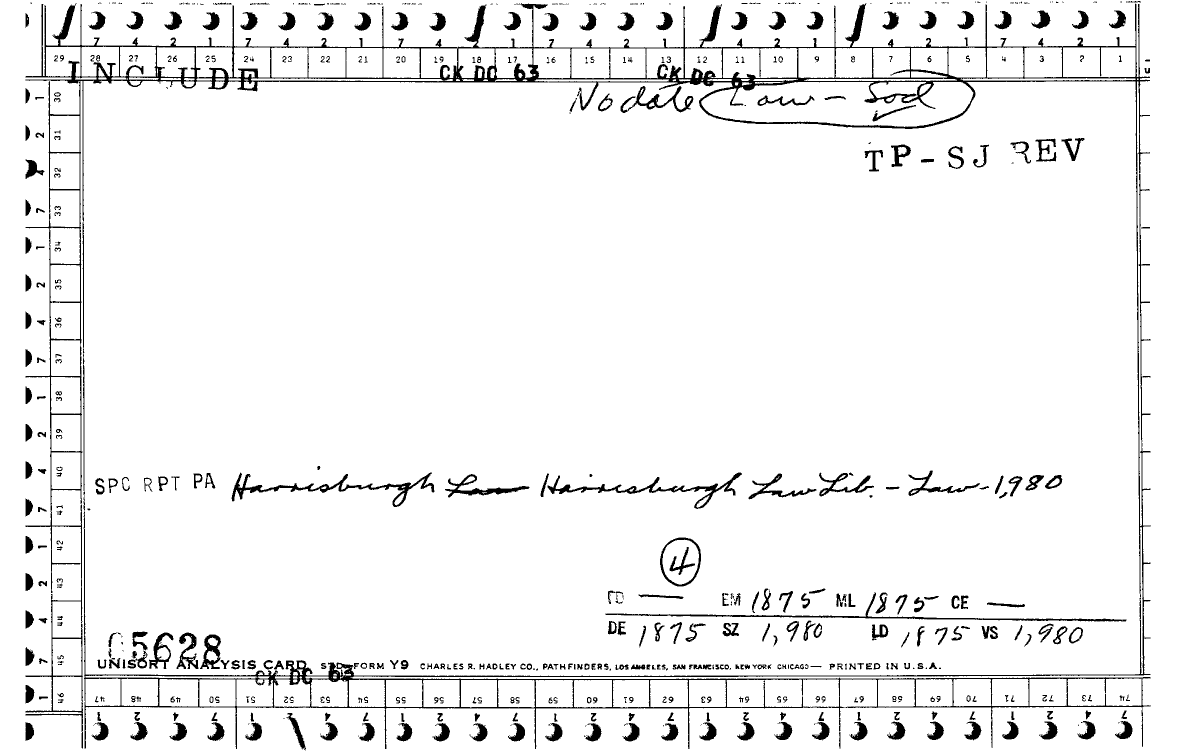 7 4 2 1 7 4 2 1 7 4 2 1 7 4 2 1 7 4 2 1 7 4 2 1 7 4 2 1
29 28 27 26 25 24 23 22 21 20 19 18 17 16 15 14 13 12 11 10 9 8 7 6 5 4 3 2 1
INCLUDE CK DC 63 CK DC 63
No date Law - Sod
TP-SJ REV
1 30
2 31
4 32
7 33
1 34
2 35
4 36
7 37
1 38
2 39
4 40
7 41
1 42
2 43
4 44
7 45
1 46
SPC RPT PA Harrisburgh Law Harrisburgh Law Lib. - Law - 1,980
4
FD — EM 1875 ML 1875 CE —
DE 1875 SZ 1,980 LD 1875 VS 1,980
05628
UNISORT ANALYSIS CARD STD. FORM Y9 CHARLES R. HADLEY CO., PATHFINDERS, LOS ANGELES, SAN FRANCISCO, NEW YORK CHICAGO— PRINTED IN U.S.A.
CK DC 63
47 48 49 50 51 52 53 54 55 56 57 58 59 60 61 62 63 64 65 66 67 68 69 70 71 72 73 74
1 2 4 7 1 2 4 7 1 2 4 7 1 2 4 7 1 2 4 7 1 2 4 7 1 2 4 7